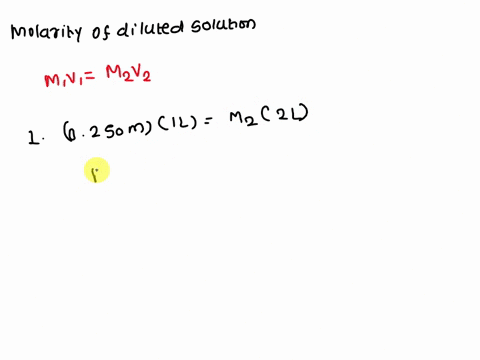 Molarity of diluted solution
M1V1 = M2V2
1. (0.250m) (1L) = M2 (2L)